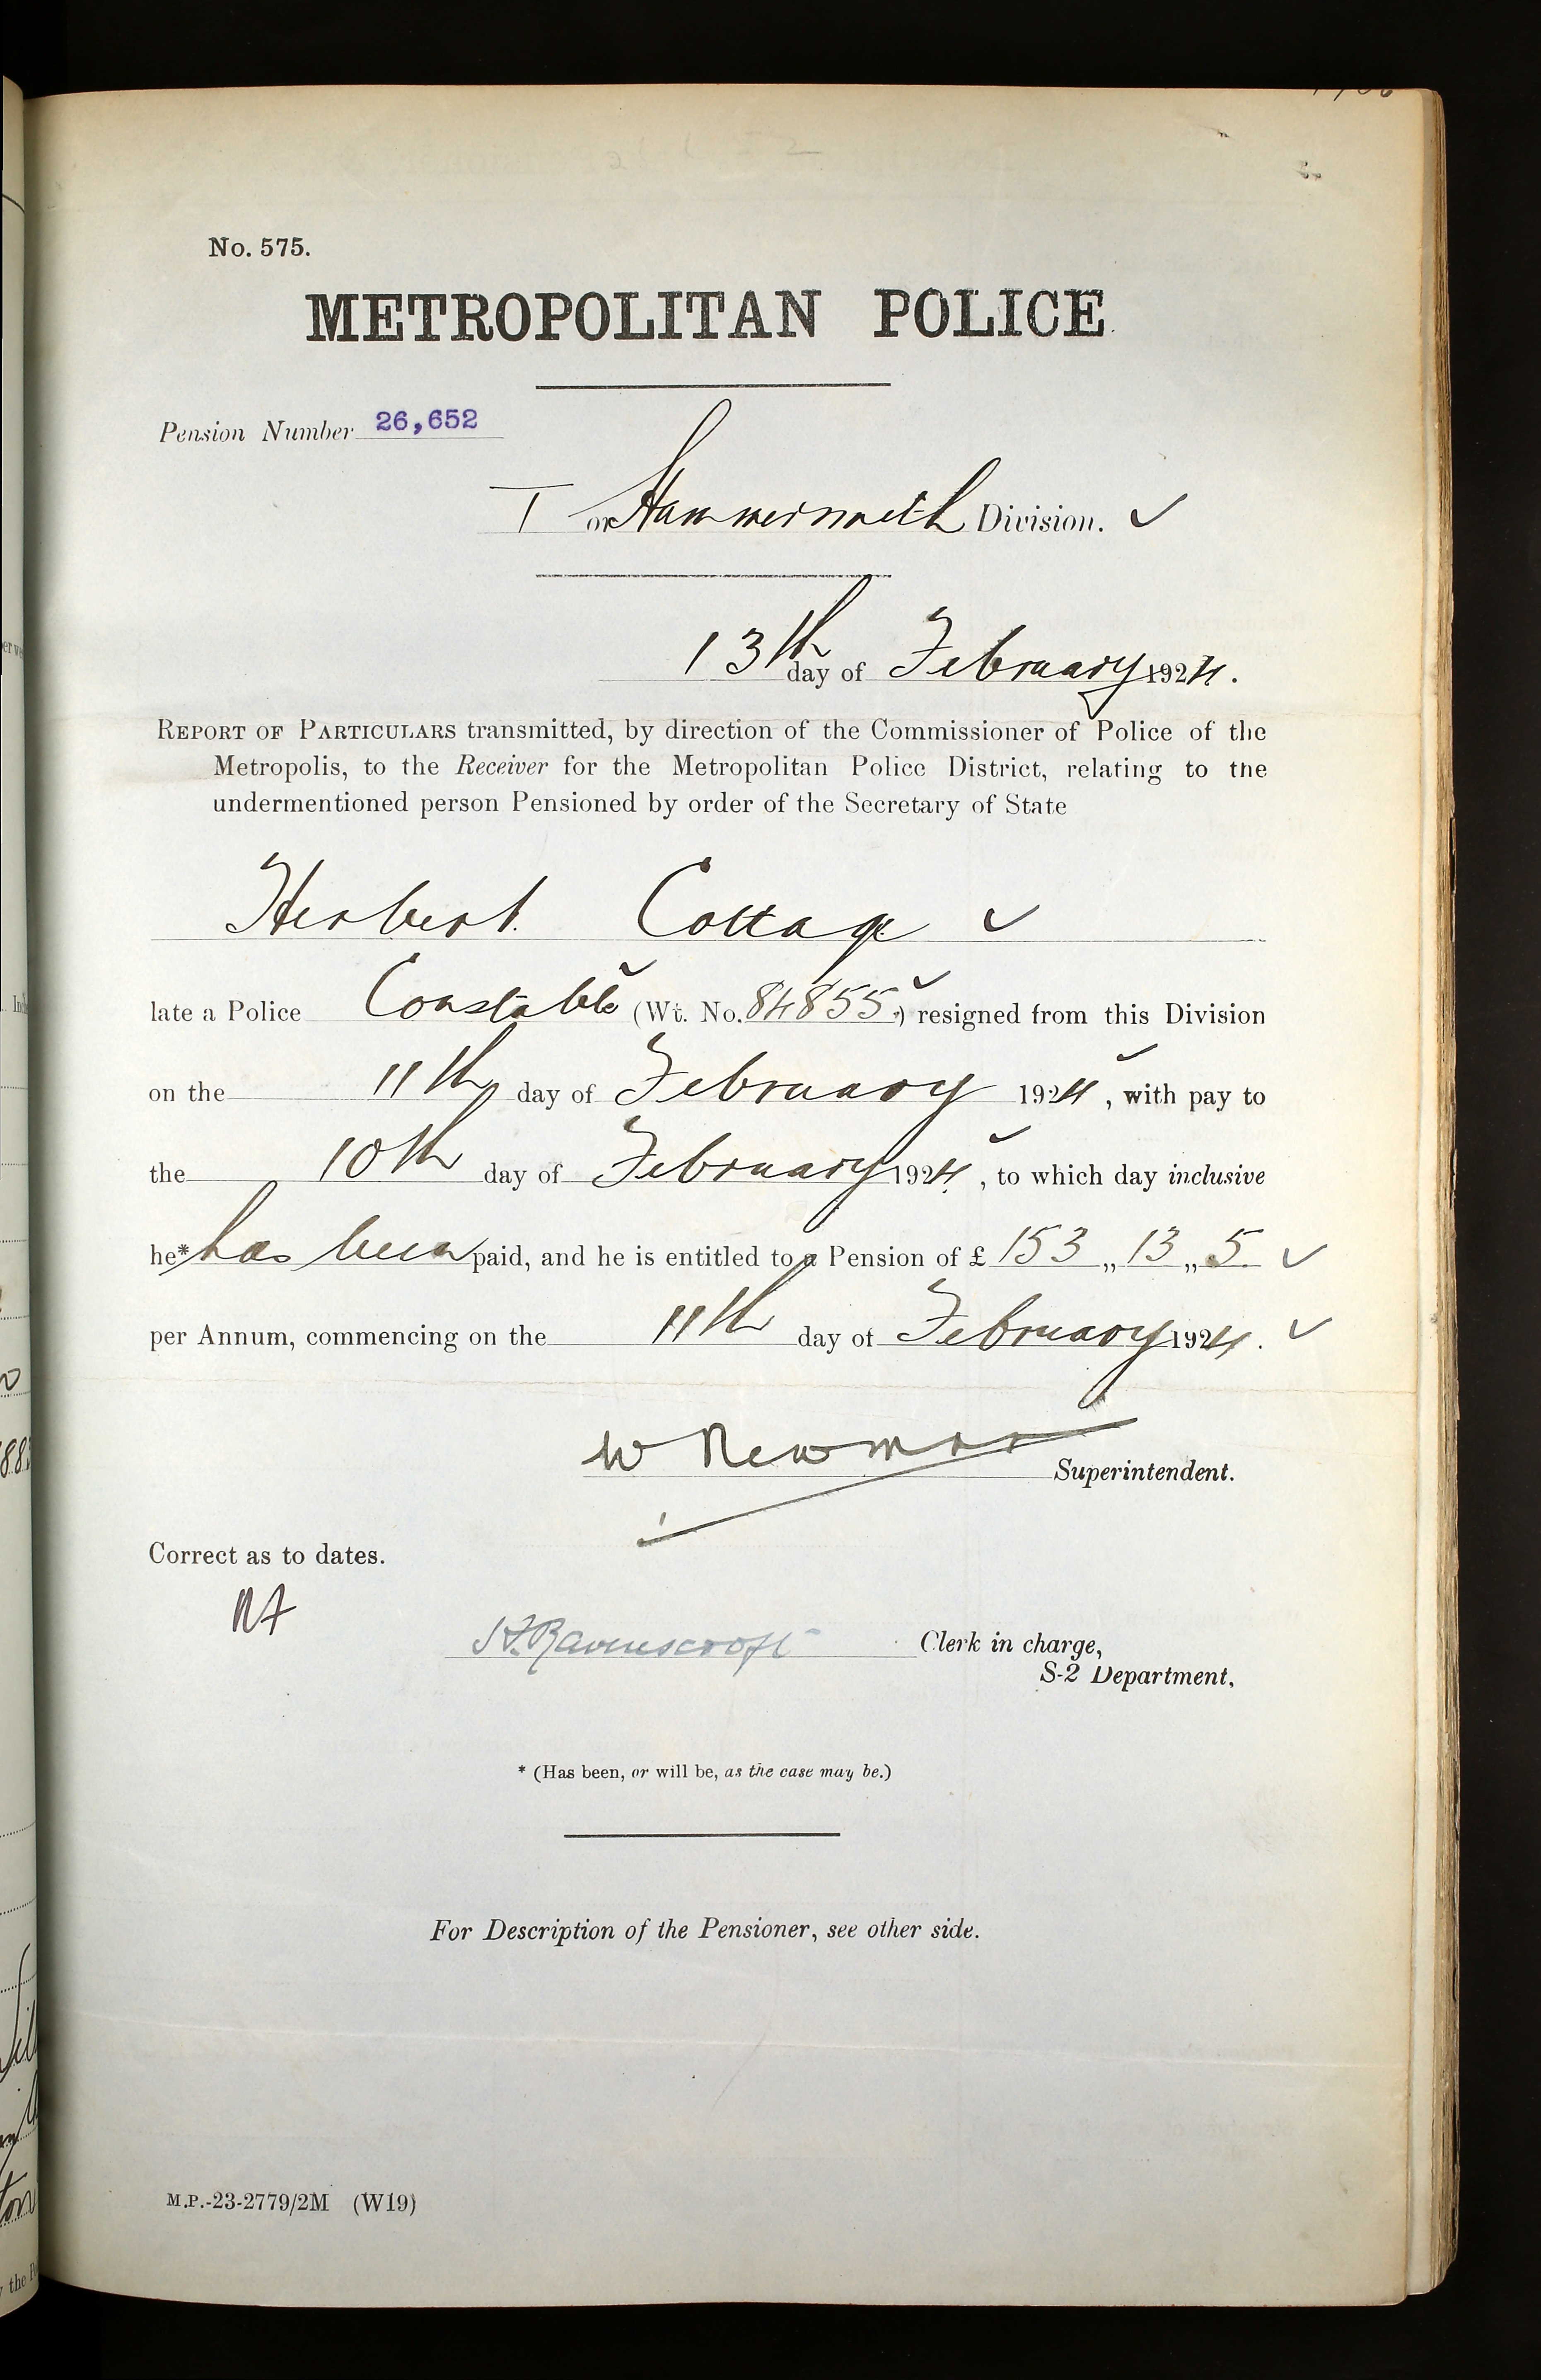 No. 575.
METROPOLITAN POLICE.
Pension Number 26,652
T or Hammersmith Division. ✓
13th day of February 1924.
REPORT OF PARTICULARS transmitted, by direction of the Commissioner of Police of the
Metropolis, to the Receiver for the Metropolitan Police District, relating to the
undermentioned person Pensioned by order of the Secretary of State
Herbert Cottage ✓
late a Police Constable (Wt. No. 84855) resigned from this Division
on the 11th day of February 1924, with pay to
the 10th day of February 1924, to which day inclusive
he* has been paid, and he is entitled to a Pension of £ 153 „ 13 „ 5. ✓
per Annum, commencing on the 11th day of February 1924. ✓
W Newman
Superintendent.
Correct as to dates.
H. Ravenscroft Clerk in charge,
S-2 Department.
* (Has been, or will be, as the case may be.)
For Description of the Pensioner, see other side.
M.P.-23-2779/2M (W19)